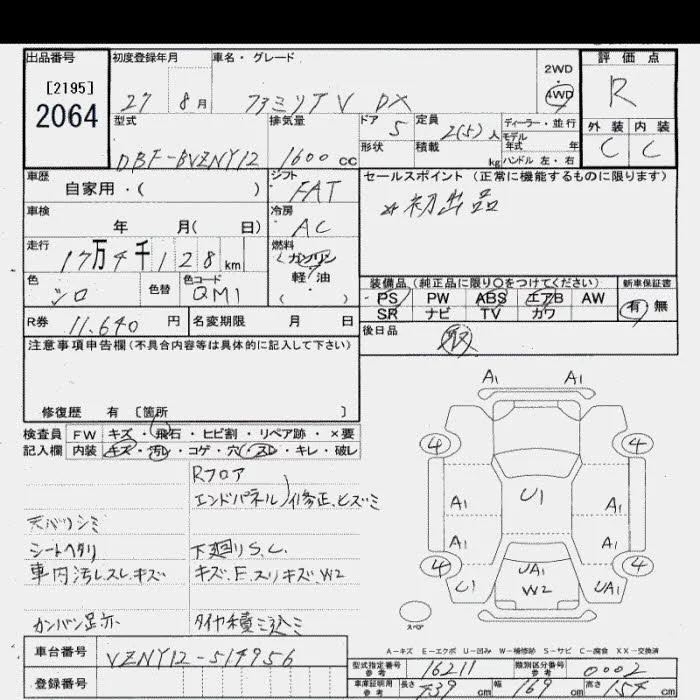 出品番号 初度登録年月 車名・グレード 2WD 評価点
[2195] 27 8月 ファミリアV DX 4WD R
2064 型式 排気量 ドア 5 定員 2(5)人 ディーラー・並行 外装 内装
モデル年式 年
DBF-BVZNY12 1600cc 形状 積載 kg ハンドル左・右 C C
車歴 シフト セールスポイント(正常に機能するものに限ります)
自家用・( ) FAT ☆初出品
車検 冷房
年 月( 日) AC
走行 燃料
17万4千128km ガソリン
色 色替 色コード 軽・油 装備品(純正品に限り○をつけてください) 新車保証書
シロ QM1 ( ) PS PW ABS エアB AW 有 無
SR ナビ TV カワ
R券 11.640円 名変期限 月 日 後日品
注意事項申告欄(不具合内容等は具体的に記入して下さい) 取
修復歴 有 [箇所 ]
A1 A1
検査員 FW キズ・飛石・ヒビ割・リペア跡・×要 4 4
記入欄 内装 キズ・汚レ・コゲ・穴・スレ・キレ・破レ
Rフロア
エンドパネル)修正、ヒズミ A1 U1 A1
天バリシミ
シートヘタリ 下廻りS.C. A1 A1
車内汚レスレキズ キズ、E、スリキズ、W2 4 UA1 4
U1 W2 UA1
カンバン足亦 タイヤ積ミ込ミ スペア
A-キズ E-エクボ U-凹み W-補修跡 S-サビ C-腐食 XX-交換済
車台番号 VZNY12-514956 型式指定番号 参考 16211 類別区分番号 参考 0002
登録番号 車庫証明用 参考 長さ 439cm 幅 169cm 高さ 154cm